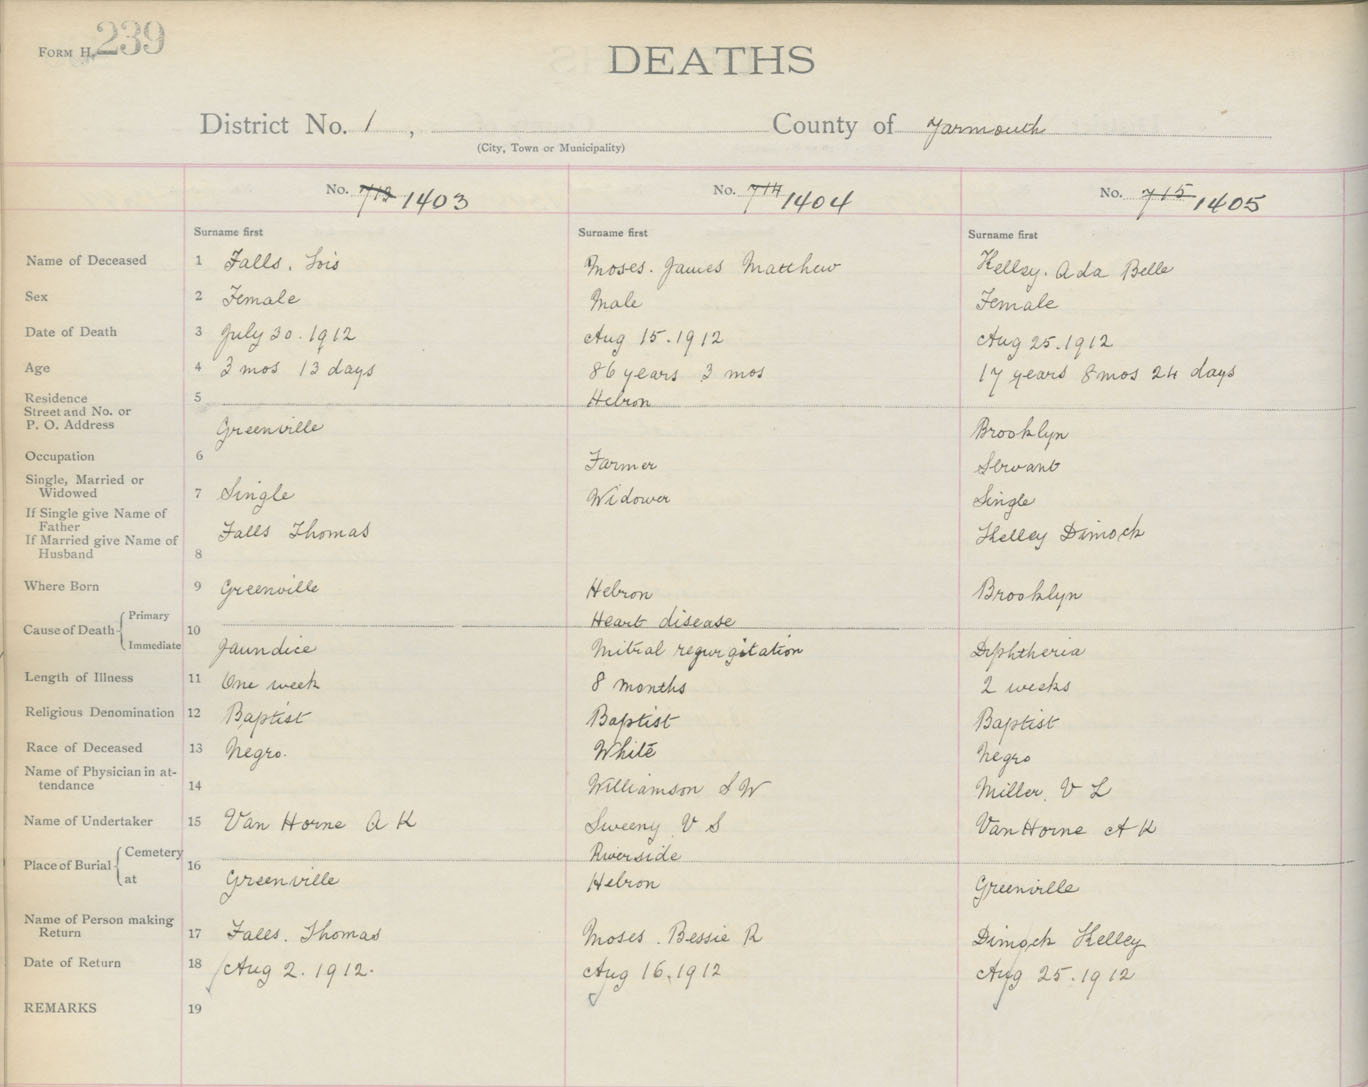 FORM H. 239
DEATHS
District No. 1 , County of Yarmouth
(City, Town or Municipality)
No. 713 1403 No. 714 1404 No. 715 1405
Surname first Surname first Surname first
Name of Deceased 1 Falls. Lois Moses. James Matthew Kelley. Ada Belle
Sex 2 Female Male Female
Date of Death 3 July 30. 1912 Aug 15. 1912 Aug 25. 1912
Age 4 3 mos 13 days 86 years 3 mos 17 years 8 mos 24 days
Residence 5 Hebron
Street and No. or
P. O. Address Greenville Brooklyn
Occupation 6 Farmer Servant
Single, Married or
Widowed 7 Single Widower Single
If Single give Name of
Father Falls Thomas Kelley Dimock
If Married give Name of
Husband 8
Where Born 9 Greenville Hebron Brooklyn
Primary Heart disease
Cause of Death 10
Immediate Jaundice Mitral regurgitation Diphtheria
Length of Illness 11 One week 8 months 2 weeks
Religious Denomination 12 Baptist Baptist Baptist
Race of Deceased 13 Negro. White Negro
Name of Physician in at-
tendance 14 Williamson S W Miller. V L
Name of Undertaker 15 Van Horne A K Sweeny V S Van Horne A K
Cemetery Riverside
Place of Burial 16
at Greenville Hebron Greenville
Name of Person making
Return 17 Falls. Thomas Moses. Bessie R Dimock Kelley
Date of Return 18 Aug 2. 1912. Aug 16. 1912 Aug 25. 1912
REMARKS 19